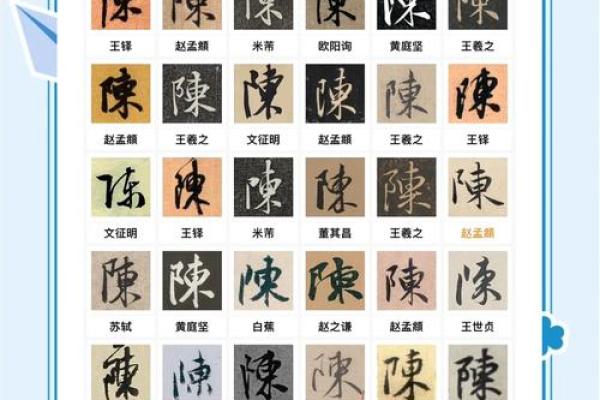 陳 陳 陳 陳 陳 陳
王铎 赵孟頫 米芾 欧阳询 黄庭坚 王羲之
陳 陳 陳 陳 陳 陳
赵孟頫 王羲之 文征明 赵孟頫 王羲之 王铎
陳 陳 陳 陳 陳 陳
文征明 王铎 米芾 董其昌 王羲之 赵孟頫
陳 陳 陳 陳 陳 陳
苏轼 黄庭坚 白蕉 赵之谦 赵孟頫 王世贞
陳 陳 陳 陳 陳 陳